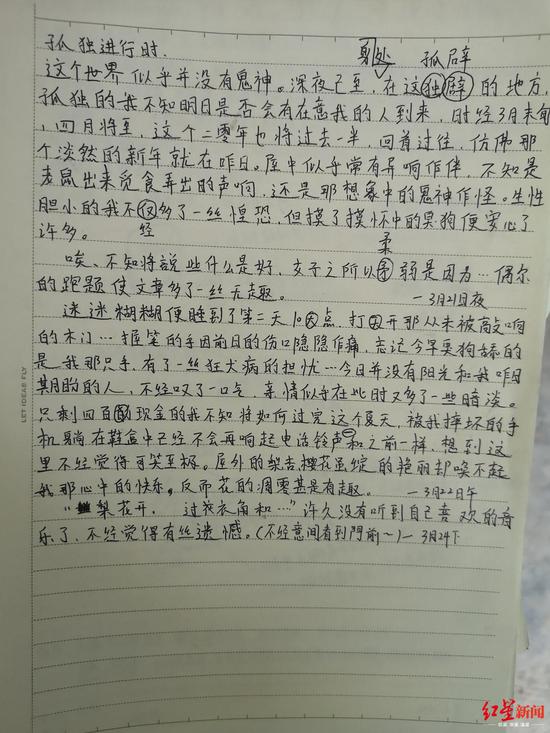 孤独进行时.
孤僻
这个世界似乎并没有鬼神。深夜已至,在这独僻的地方,
孤独的我不知明日是否会有在意我的人到来,时经3月末旬
,四月将至,这个二零年也将过去一半,回首过往,仿佛那
个淡然的新年就在昨日。屋中似乎常有异响作伴,不知是
老鼠出来觅食弄出的声响,还是那想象中的鬼神作怪。生性
胆小的我不仅多了一丝惶恐,但摸了摸怀中的臭狗便安心了
经
许多。
柔
唉、不知将说些什么是好,女子之所以弱是因为…偶尔
的跑题使文章多了一丝无趣。
—3月21日夜
迷迷糊糊便睡到了第二天10点,打开那从未被敲响
的木门…握笔的手因前日的伤口隐隐作痛,忘记今早臭狗舔的
是我那只手,有了一丝狂犬病的担忧…今日并没有阳光和我昨日
期盼的人,不经叹了一口气,亲情似乎在此时又多了一些暗淡。
只剩四百现金的我不知将如何过完这个夏天,被我摔坏的手
机躺在鞋盒中已经不会再响起电话铃声和之前一样,想到这
里不经觉得可笑至极。屋外的梨杏樱花盛绽的艳丽却唤不起
我那心中的快乐,反而花的凋零甚是有趣。
—3月22日午
“梨花开. 过我衣角和…”许久没有听到自己喜欢的音
乐了,不经觉得有丝遗憾。(不经意间看到門前~)—3月24下
LET IDEAS FLY
红星新闻